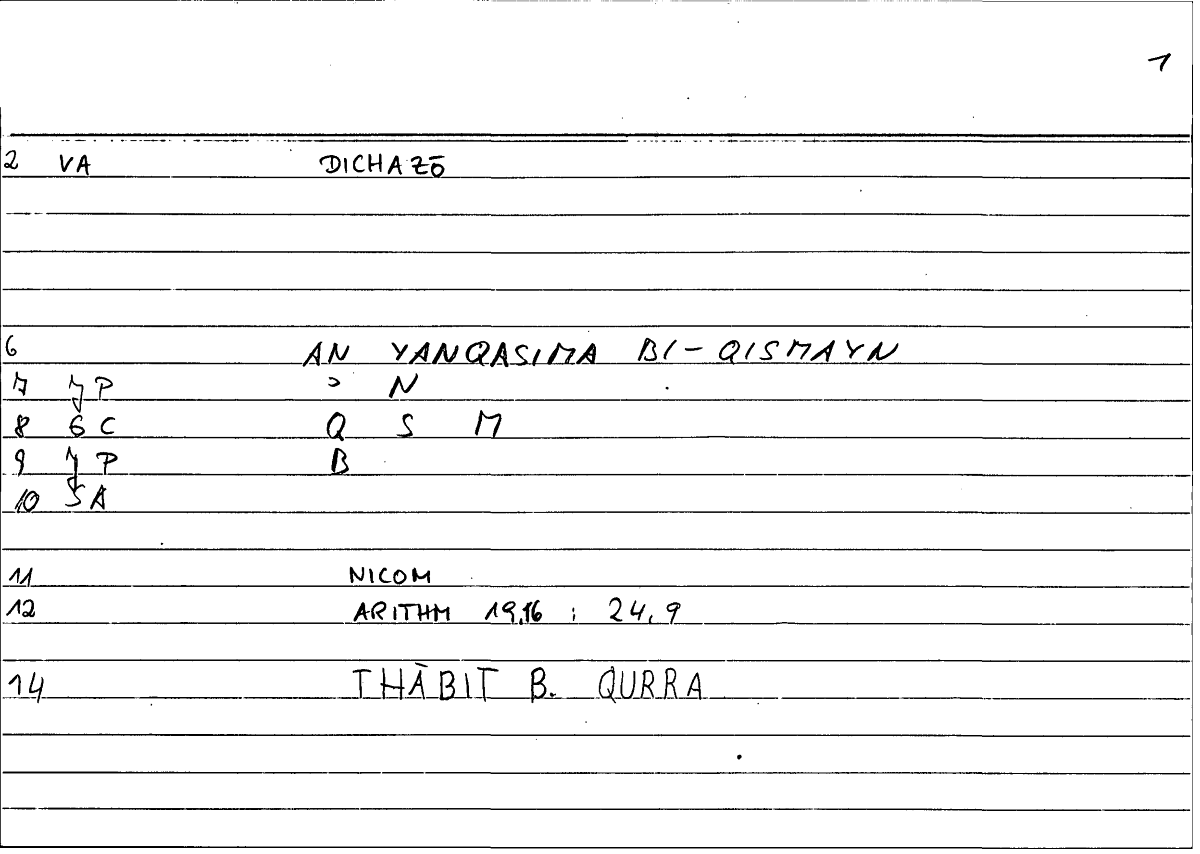 1
2 VA DICHAZŌ
6 AN YANQASIMA BI-QISMAYN
7 7P ʾ N
8 6C Q S M
9 7P B
10 5A
11 NICOM
12 ARITHM 19,16 : 24,9
14 THĀBIT B. QURRA